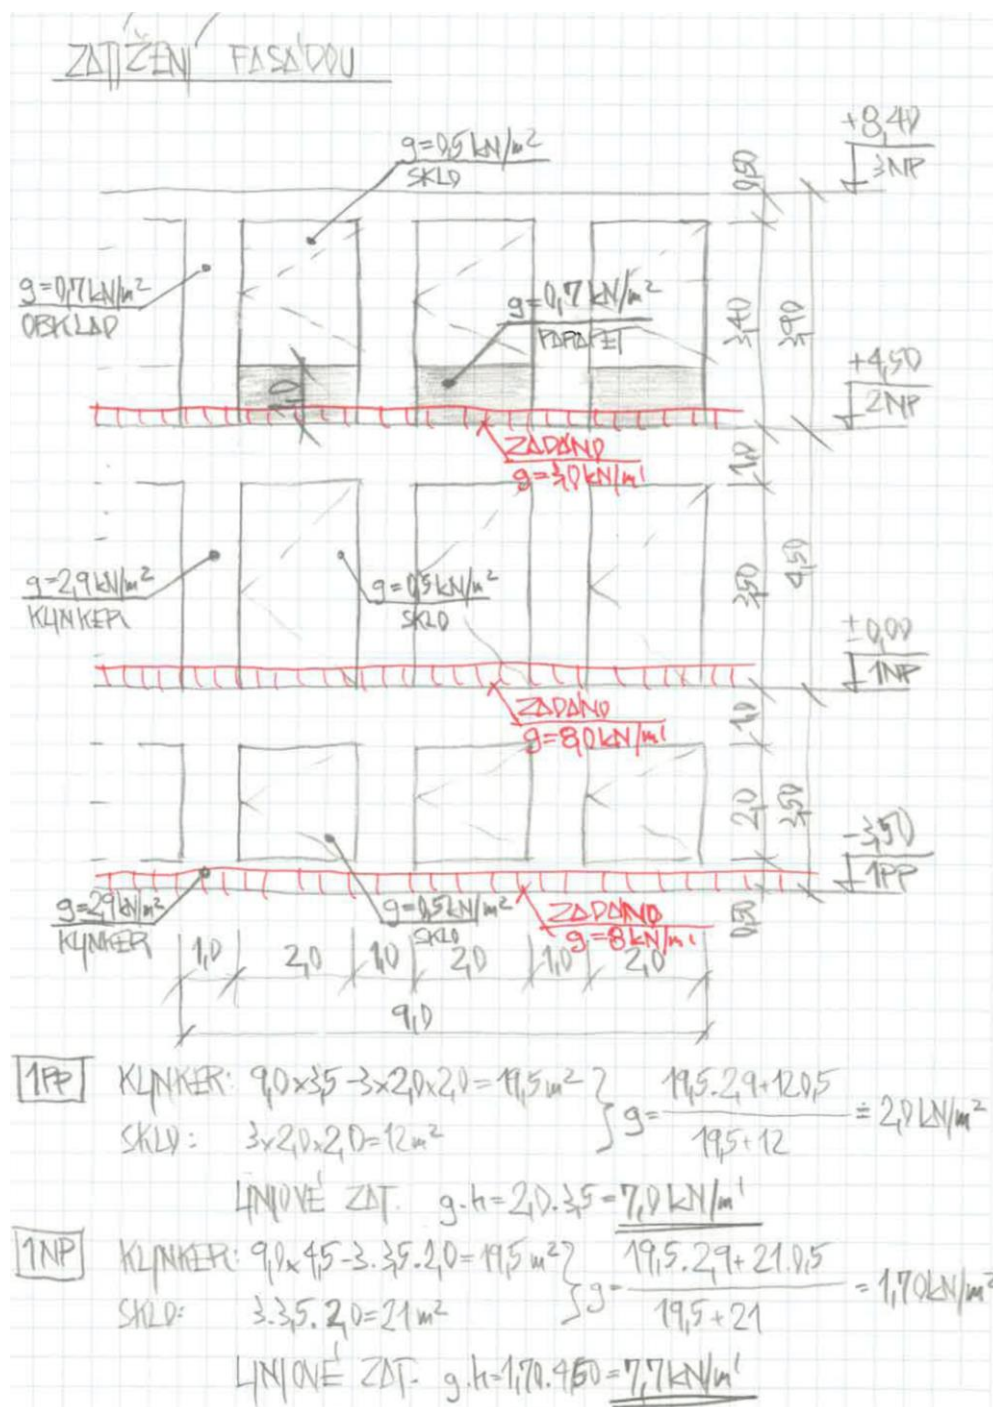 ZATÍŽENÍ FASÁDOU
+8,40
3NP
g=0,5 kN/m²
SKLO
0,50
g=0,7 kN/m²
OBKLAD
g=0,7 kN/m²
PARAPET
3,40
3,90
1,0
+4,50
2NP
ZADÁNO
g=3,0 kN/m'
1,0
g=2,9 kN/m²
KLINKER
g=0,5 kN/m²
SKLO
3,50
4,50
±0,00
1NP
ZADÁNO
g=8,0 kN/m'
1,0
2,0
3,50
-3,50
1PP
g=2,9 kN/m²
KLINKER
g=0,5 kN/m²
SKLO
ZADÁNO
g=8 kN/m'
0,50
1,0 2,0 1,0 2,0 1,0 2,0
9,0
1PP KLINKER: 9,0×3,5-3×2,0×2,0=19,5 m² } g= 19,5.2,9+12.0,5 / 19,5+12 ≐ 2,0 kN/m²
SKLO: 3×2,0×2,0=12 m²
LINIOVÉ ZAT. g.h=2,0.3,5=7,0 kN/m'
1NP KLINKER: 9,0×4,5-3.3,5.2,0=19,5 m² } g= 19,5.2,9+21.0,5 / 19,5+21 = 1,70 kN/m²
SKLO: 3.3,5.2,0=21 m²
LINIOVÉ ZAT. g.h=1,70.4,50=7,7 kN/m'